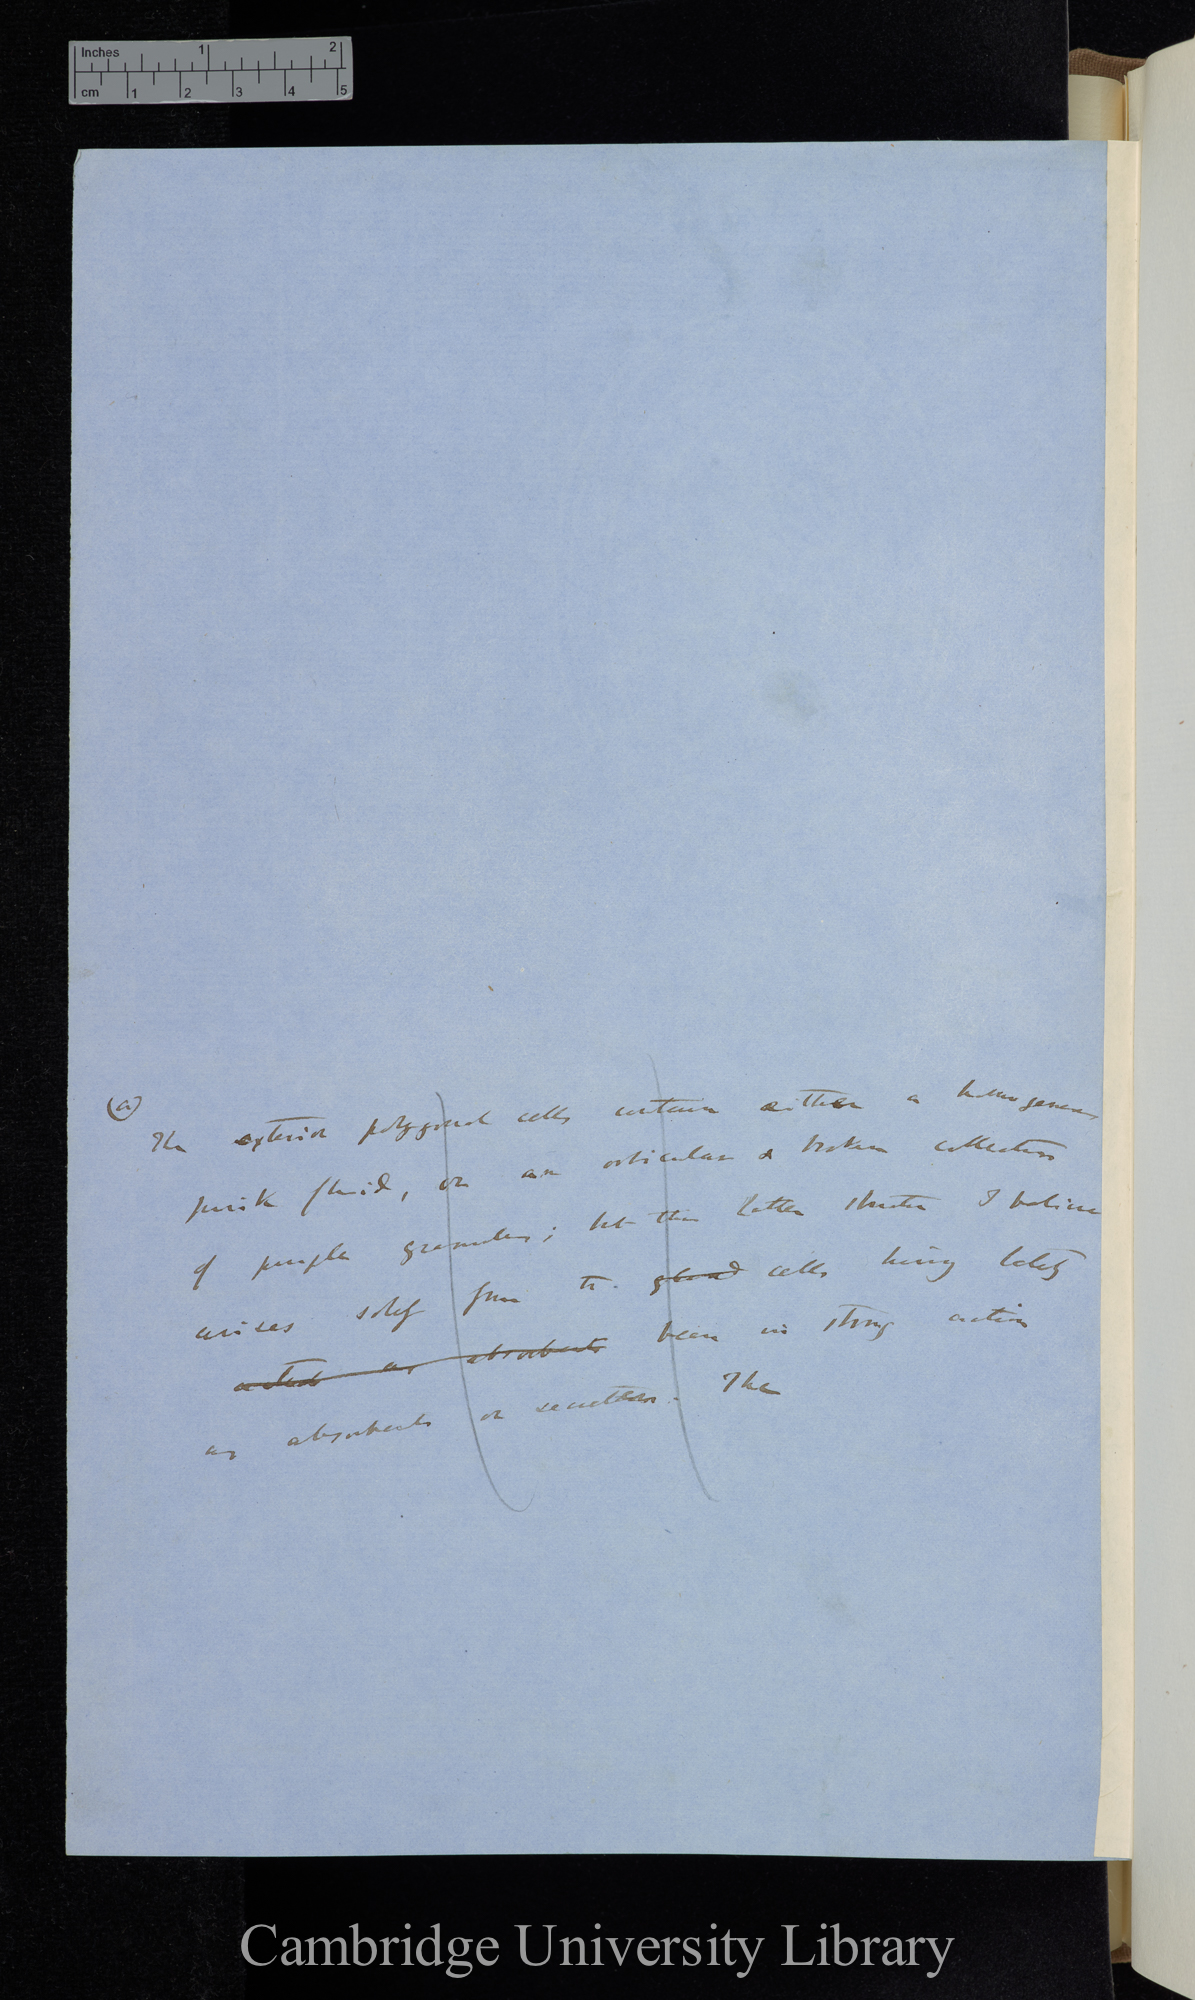 Inches 1 2
cm 1 2 3 4 5
(a)
The exterior polygonal cells contain either a homogeneous
pink fluid, or an orbicular & broken collection
of purple granules; but this latter structure I believe
arises solely from the gland cells having lately
acted as absorbents been in strong action
as absorbents or secretors. The
Cambridge University Library